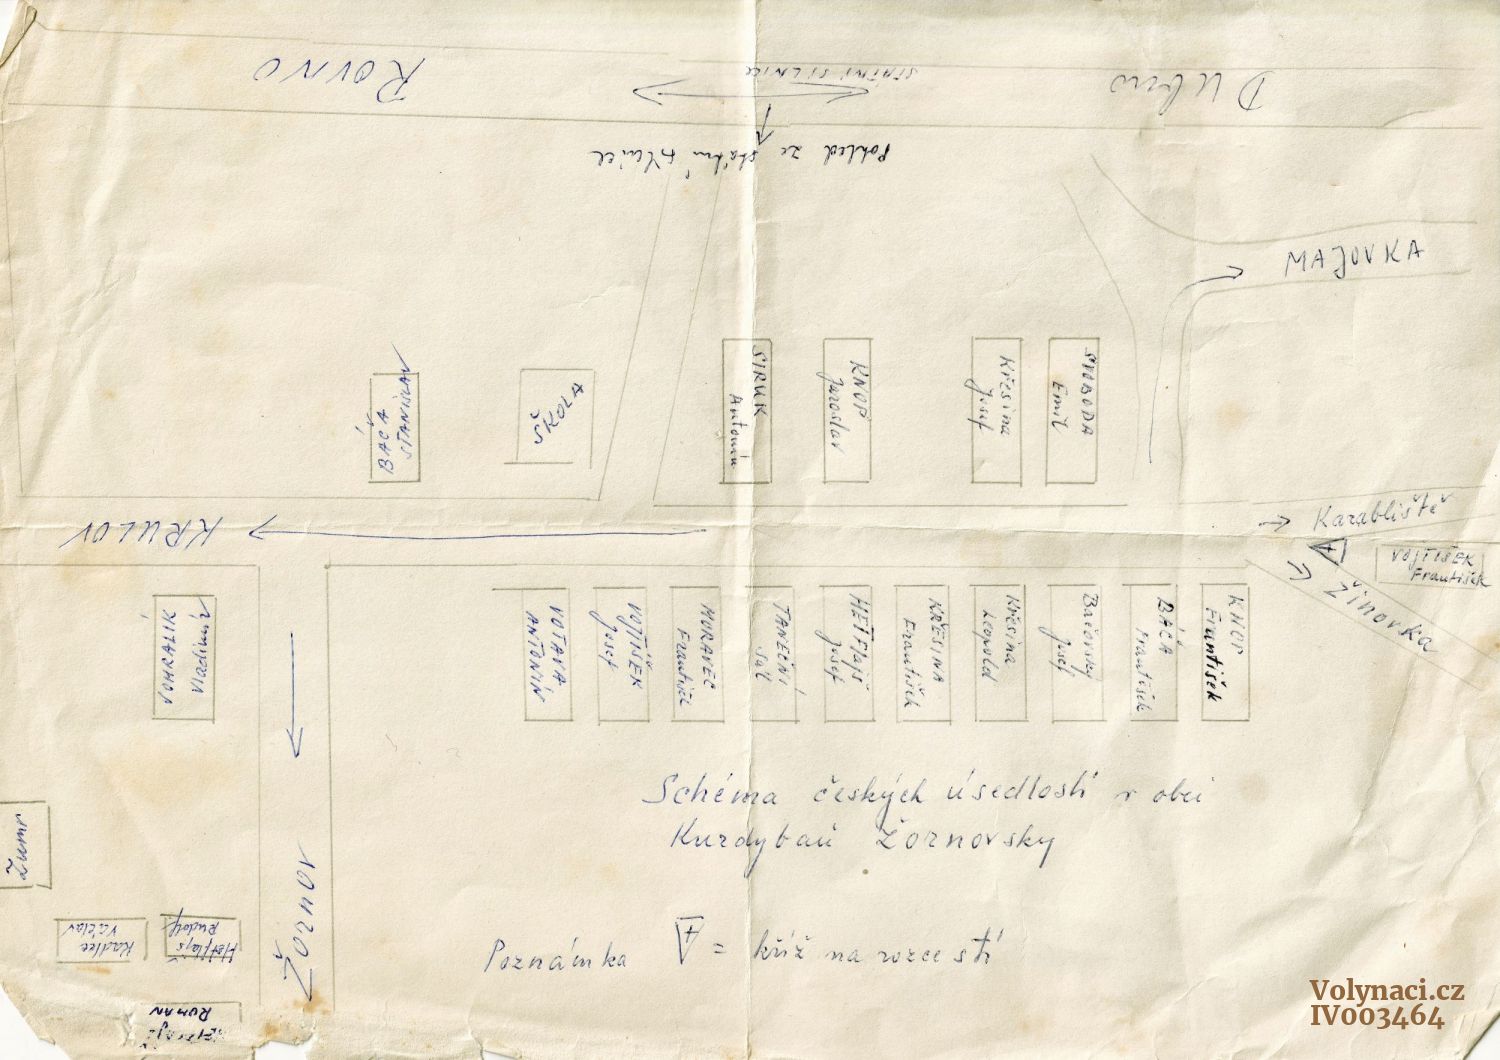 ROVNO
STÁTNÍ SILNICE
Dubno
Pohled ze státní silnice
MAJOVKA
BAČA
STANISLAV
ŠKOLA
SIRUK
Antonín
KNOP
Jaroslav
Křesina
Josef
SVOBODA
Emil
KRULOV
Karabliště
VOJTIŠEK
František
Žinovka
Vladimír
VOTAVA
ANTONÍN
VOJTIŠEK
Josef
MORAVEC
František
TANEČNÍ
Sál
HEJFlajš
Josef
KŘESINA
František
Křesina
Leopold
Bačovský
Josef
BÁČA
František
KNOP
František
Schéma českých úsedlostí v obci
Kurdybaň Žornovsky
ŽORNOV
Žumr
Kadlec
Václav
Hejflajš
Rudolf
ROMAN
Poznámka = kříž na rozcestí
Volynaci.cz
IV003464